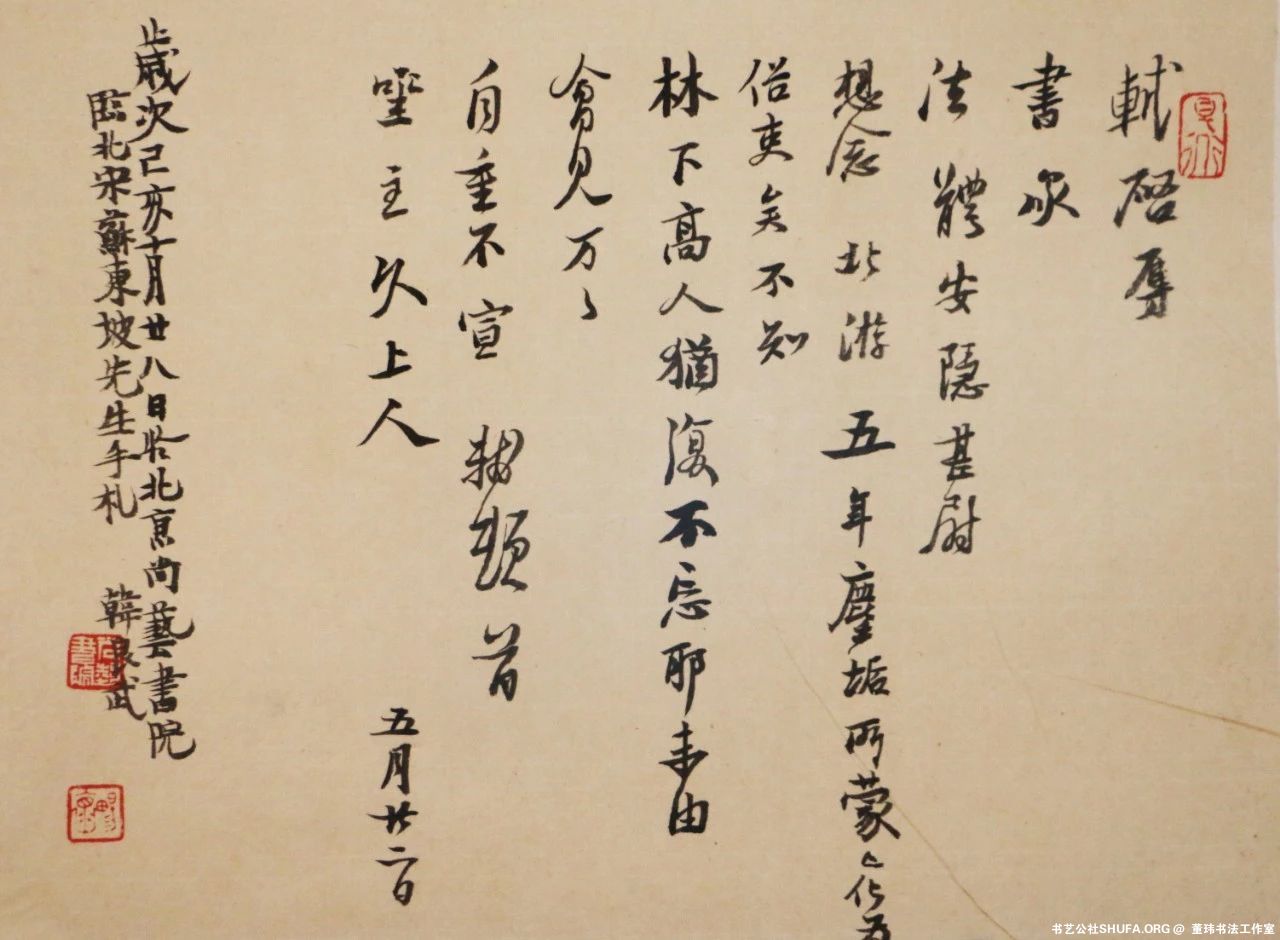 軾啓辱
書承
法體安隱甚慰
想念北游五年塵垢所蒙已化為
俗吏矣不知
林下高人猶復不忘耶未由
會見万々
自重不宣 軾頓首
坐主久上人
五月廿二日
歲次己亥十月廿八日於北京尚藝書院
臨北宋蘇東坡先生手札
韓良武
尚藝書院
书艺公社SHUFA.ORG @ 董玮书法工作室